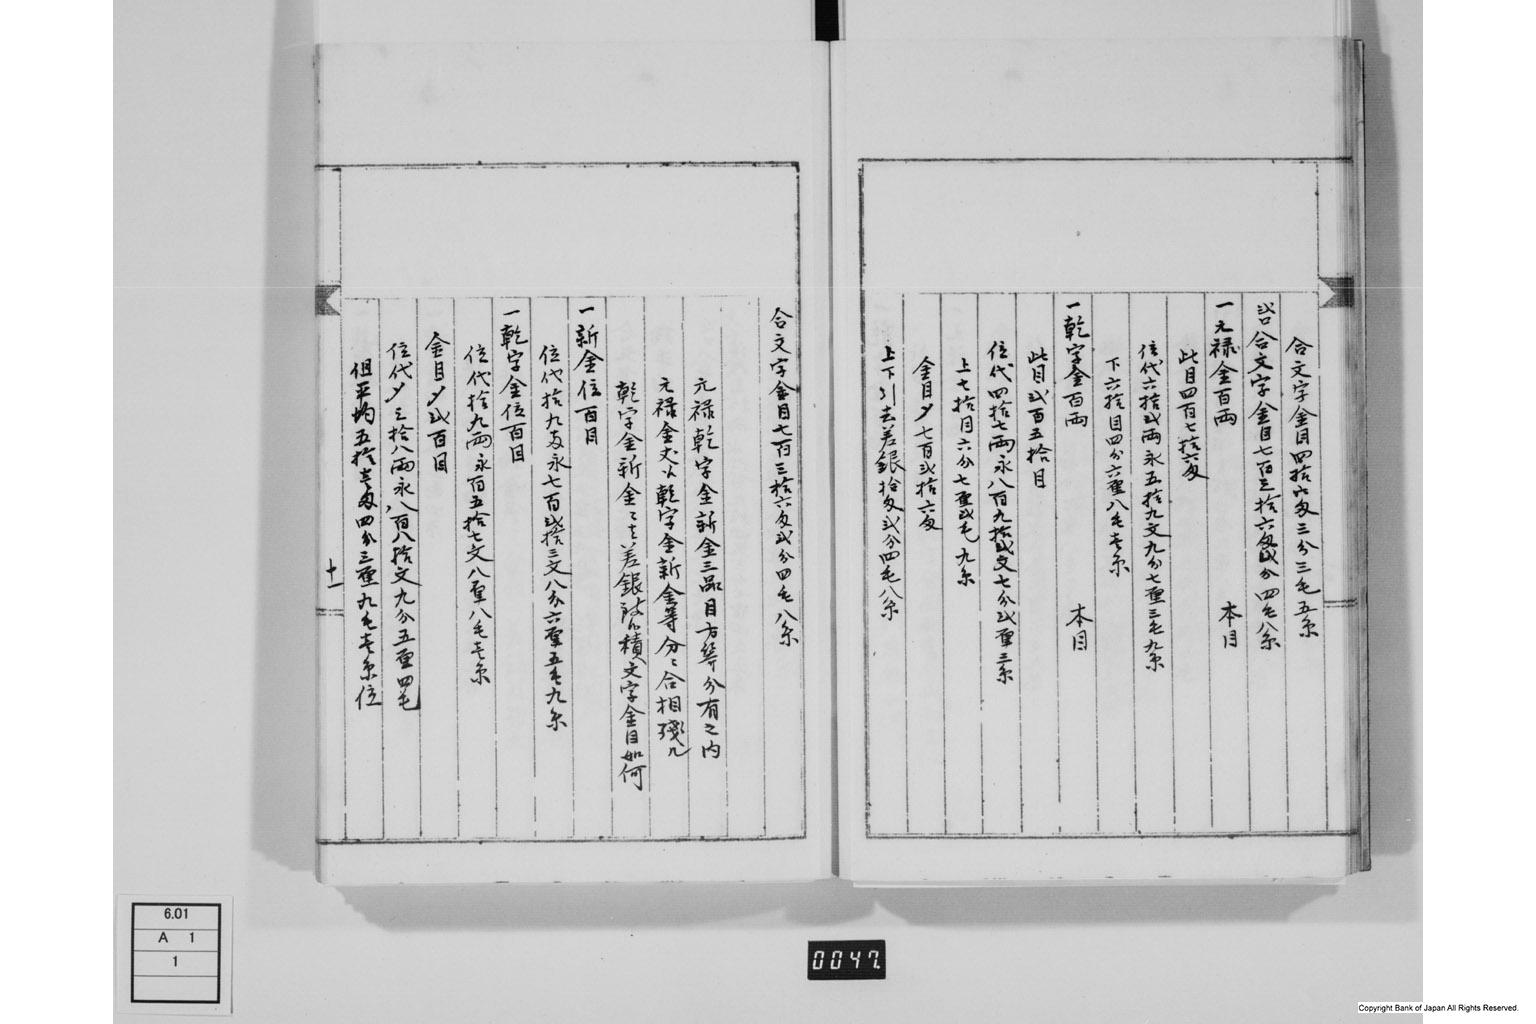 合文字金目四拾六匁三分三毛五糸
弐口合文字金目七百三拾六匁弐分四毛八糸
一元禄金百両 本目
此目四百七拾六匁
位代六拾弐両永五拾九文九分七厘三毛九糸
下六拾目四分六厘八毛壱糸
一乾字金百両 本目
此目弐百五拾目
位代四拾七両永八百九拾弐文七分弐厘三糸
上七拾目六分七厘弐毛九糸
金目〆七百弐拾六匁
上下引去差銀拾匁弐分四毛八糸
合文字金目七百三拾六匁弐分四毛八糸
元禄乾字金新金三品目方等分有之内
元禄金丈ケ乾字金新金等分ニ合相残ル
乾字金新金ニ差銀積文字金目如何
一新金位百目
位代拾九両永七百弐拾三文八分六厘五毛九糸
一乾字金位百目
位代拾九両永百五拾七文八厘八毛壱糸
金目〆弐百目
位代〆三拾八両永八百八拾文九分五厘四毛
但平均五拾壱匁四分三厘九毛壱糸位
十一
6.01
A 1
1
0047
Copyright Bank of Japan All Rights Reserved.